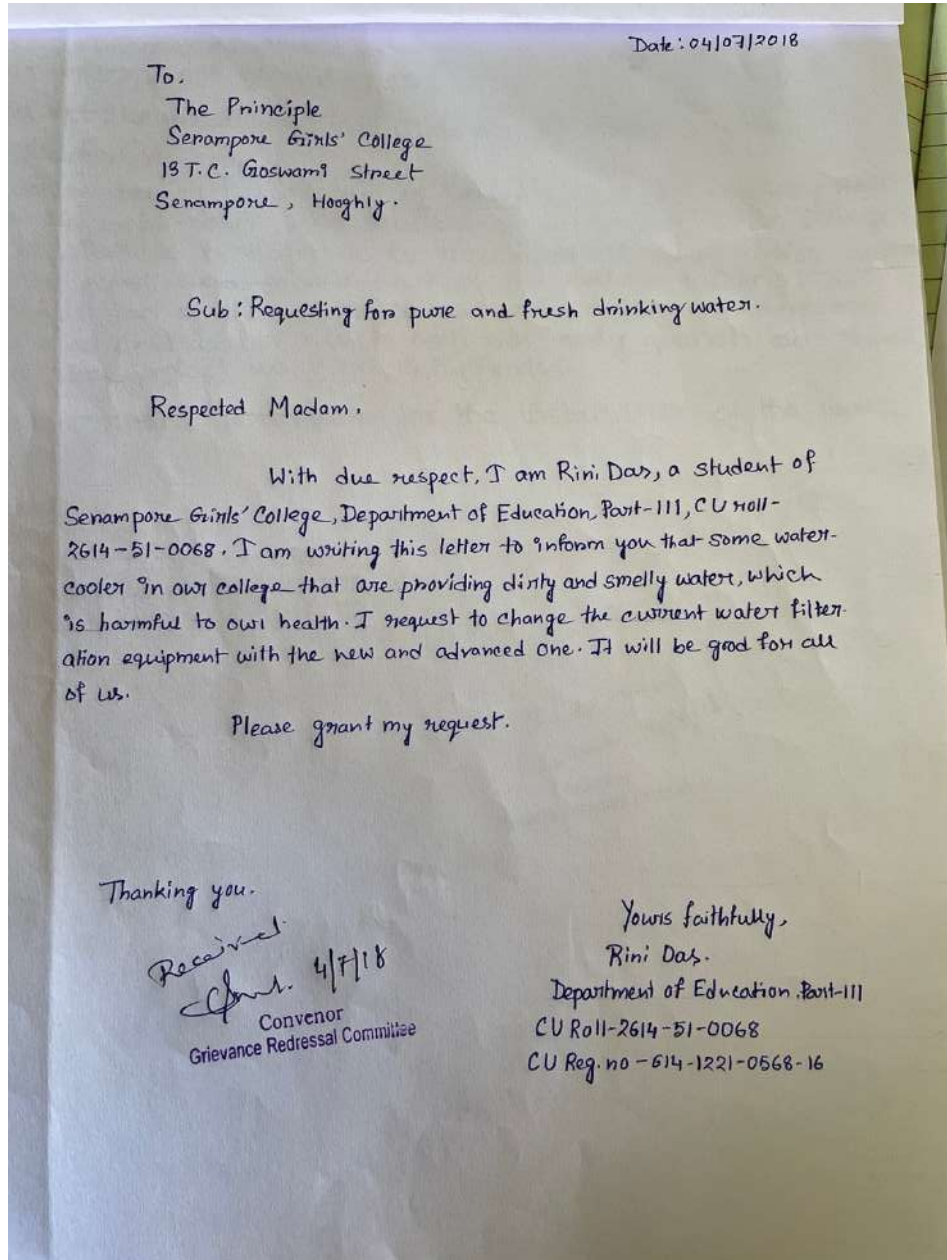 Date: 04/07/2018
To,
The Principle
Serampore Girls' College
13 T.C. Goswami Street
Serampore, Hooghly.
Sub: Requesting for pure and fresh drinking water.
Respected Madam,
With due respect, I am Rini Das, a student of
Serampore Girls' College, Department of Education, Part-III, CU roll-
2614-51-0068. I am writing this letter to inform you that some water-
cooler in our college that are providing dirty and smelly water, which
is harmful to our health. I request to change the current water filter-
ation equipment with the new and advanced one. It will be good for all
of us.
Please grant my request.
Thanking you.
Received
4/7/18
Convenor
Grievance Redressal Committee
Yours faithfully,
Rini Das.
Department of Education. Part-III
CU Roll-2614-51-0068
CU Reg. no - 614-1221-0568-16